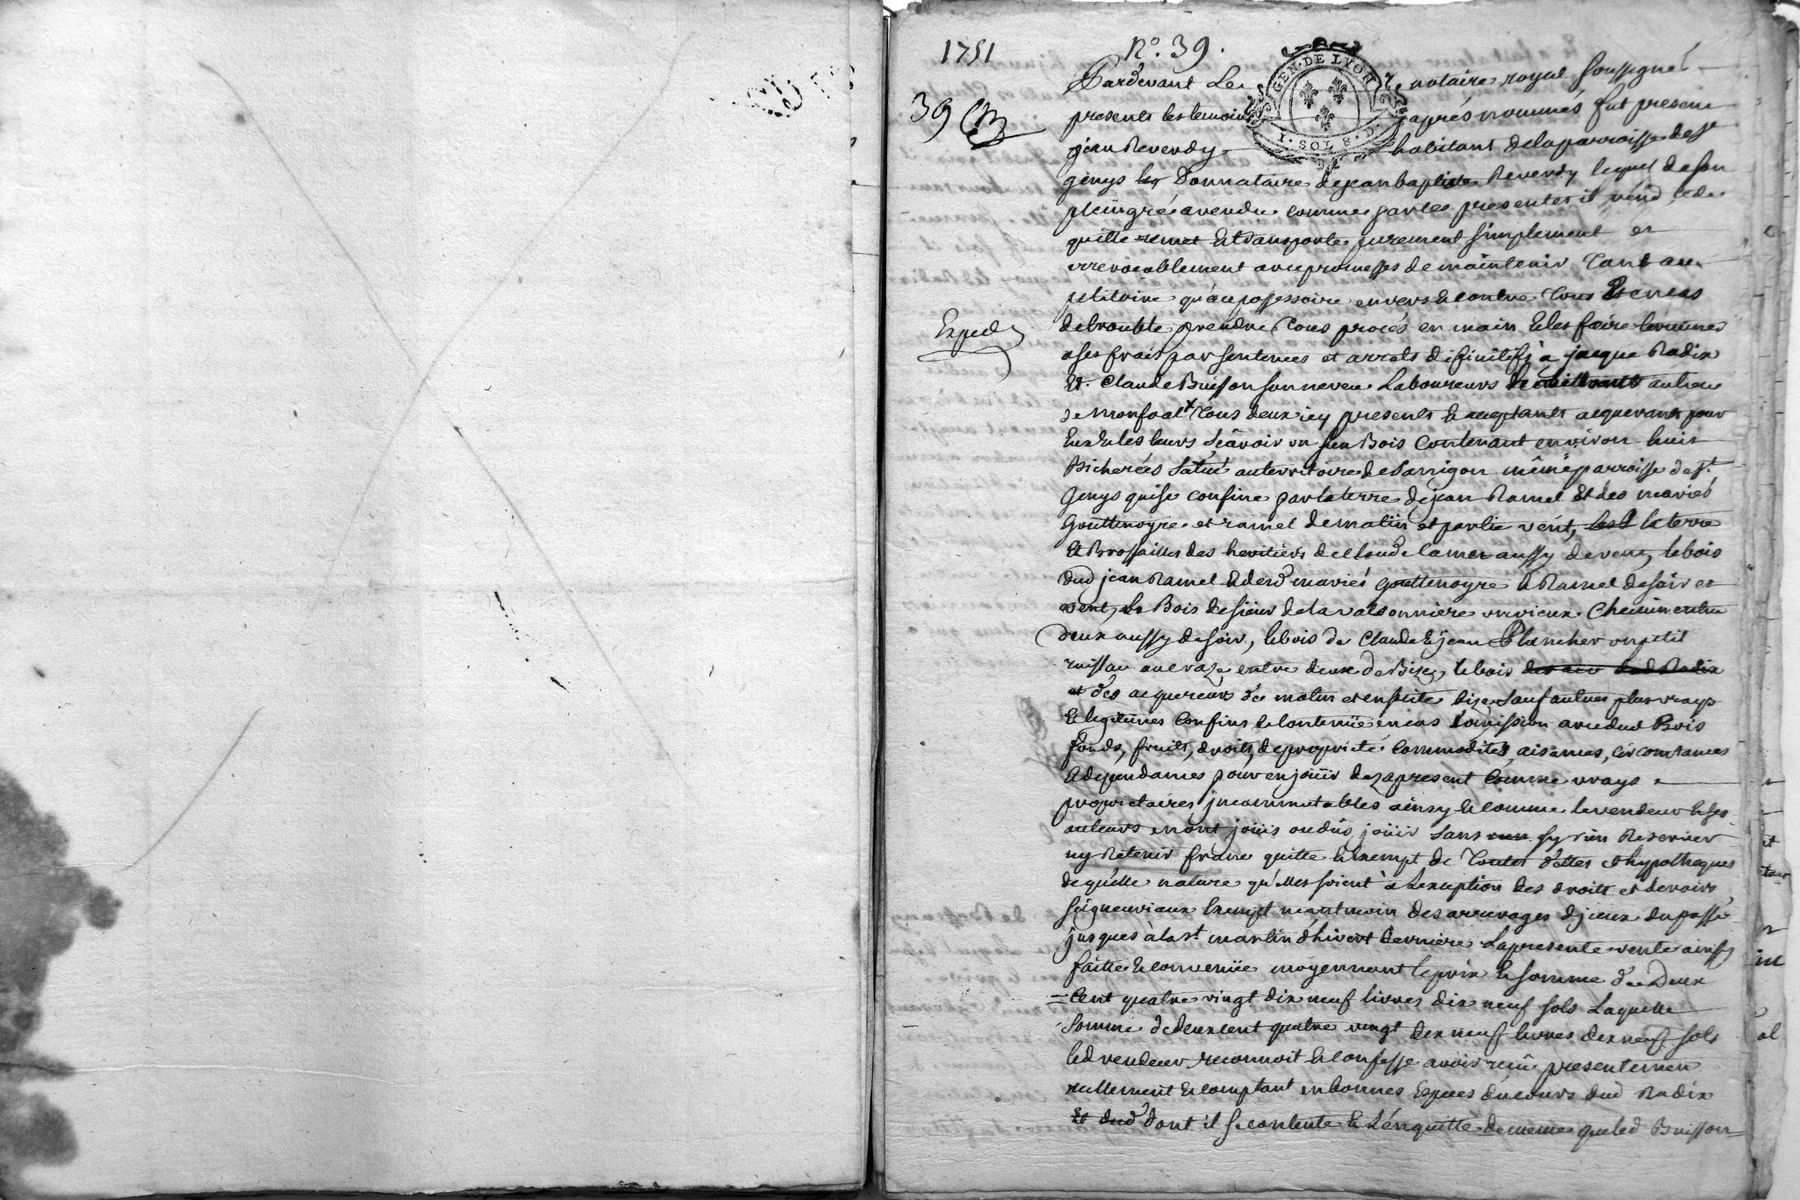 1751
N.o 39.
GEN. DE LYON
1. SOL 8. D.
39
Exped
Pardevant Le notaire royal soussigné
presents les temoins aprés nommés fut present
jean Reverdy habitant de la parroisse de st
genys Donnataire de jean baptiste Reverdy lequel de son
plein gré a vendu comme par les presentes il vend cede
quitte remet et transporte purement simplement et
irrevocablement avec promesses de maintenir tant au
petitoire qu'au possessoire envers et contre tous et en cas
de trouble prendre tous procés en main et les faire terminer
a ses frais par sentences et arrets difinitifs a jacque Radix
et Claude Buisson son neveu Laboureurs au lieu
de tous deux icy presents et acceptants acquereurs pour
eux et les leurs sçavoir un Bois contenant environ huit
Bicherées situé au territoire de même parroisse de st
Genys qui se confine par la terre de jean Ramel et des mariés
Gouttenoyre et ramel de matin et partie vent, la terre
et Brossailles des heritiers de Claude aussy de vent, le bois
dud jean Ramel et desd mariés gouttenoyre et Ramel de soir et
vent, le Bois de sieur de la un vieux Chemin entre
deux aussy de soir, le bois de Claude et jean Plancher un petit
ruissau entre deux de Bize, le bois des Radix
et des acquereurs de matin et ensuite bize sauf autres plus vrays
et legitimes confins et contenüe en cas d'omission avec dud Bois
fonds, fruits, droits, de proprieté commodités, aisances, circonstances
et dependances pour en joüir dez apresent comme vrays
proprietaires jncommutables ainsy et comme le vendeur et ses
auteurs en ont joüis ou dûs joüir sans sy rien Reserver
ny Retenir franc quitte et exempt de toutes dettes et hypotheques
de quelle nature qu'elles soient à L'exception des droits et devoirs
seigneuriaux exempt neantmoin des arrerages d'jceux du passé
jusques à la st martin d'hivert derniere La presente vente ainsy
faitte et convenüe moyennant le prix et somme de Deux
Cent quatre vingt dix neuf livres dix neuf sols Laquelle
somme de deux cent quatre vingt dix neuf livres dix neuf sols
led vendeur reconnoit et confesse avoir reçu presentement
réellement et comptant en bonnes Especes du cours dud Radix
et dud dont il se contente et L'en quitte de meme que led Buisson